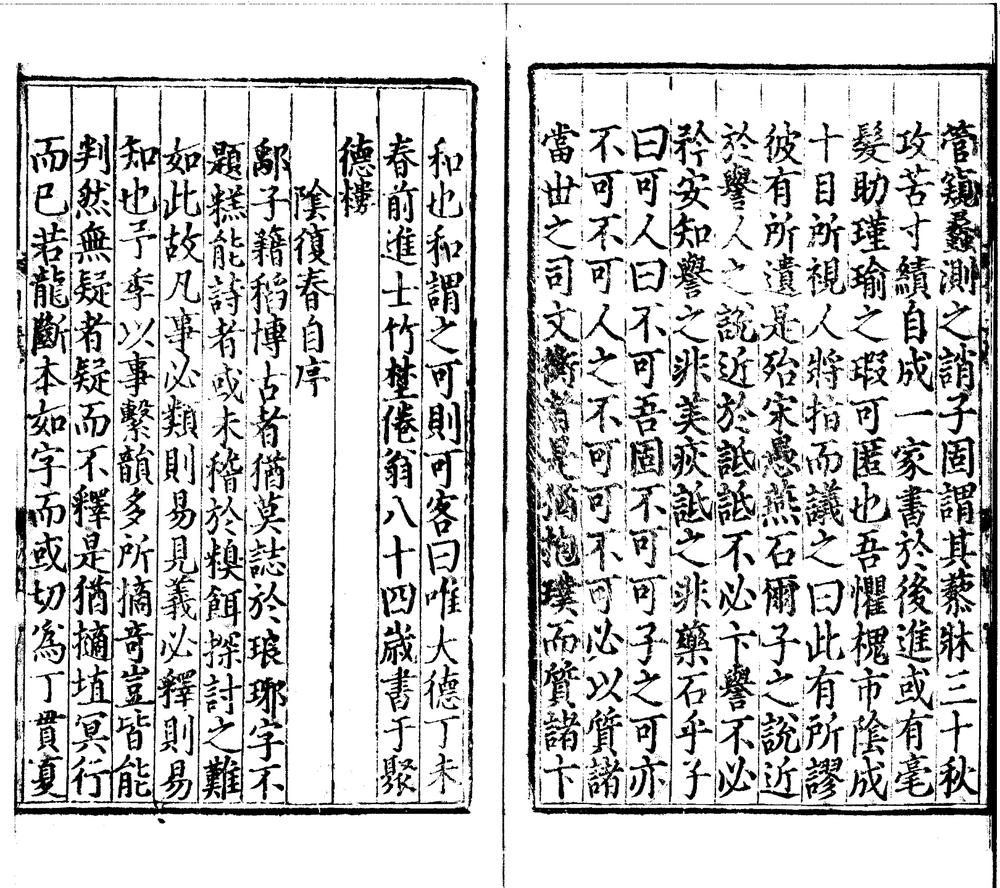 管窺蠡測之誚子固謂其藜牀三十秋
攻苦寸績自成一家書於後進或有毫
髮助瑾瑜之瑕可匿也吾懼槐市陰成
十目所視人將指而議之曰此有所謬
彼有所遺是殆宋愚燕石爾子之說近
於譽人之說近於詆詆不必卞譽不必
矜安知譽之非美疢詆之非藥石乎子
曰可人曰不可吾固不可可子之可亦
不可不可人之不可可不可必以質諸
當世之司文衡者是猶抱璞而質諸卞
和也和謂之可則可客曰唯大德丁未
春前進士竹埜倦翁八十四歲書于聚
德樓
陰復春自序
鄅子籍稻博古者猶莫誌於琅琊字不
題糕能詩者或未稽於糗餌探討之難
如此故凡事必類則易見義必釋則易
知也予季以事繫韻多所摘奇豈皆能
判然無疑者疑而不釋是猶擿埴冥行
而已若龍斷本如字而或切為丁貫夏